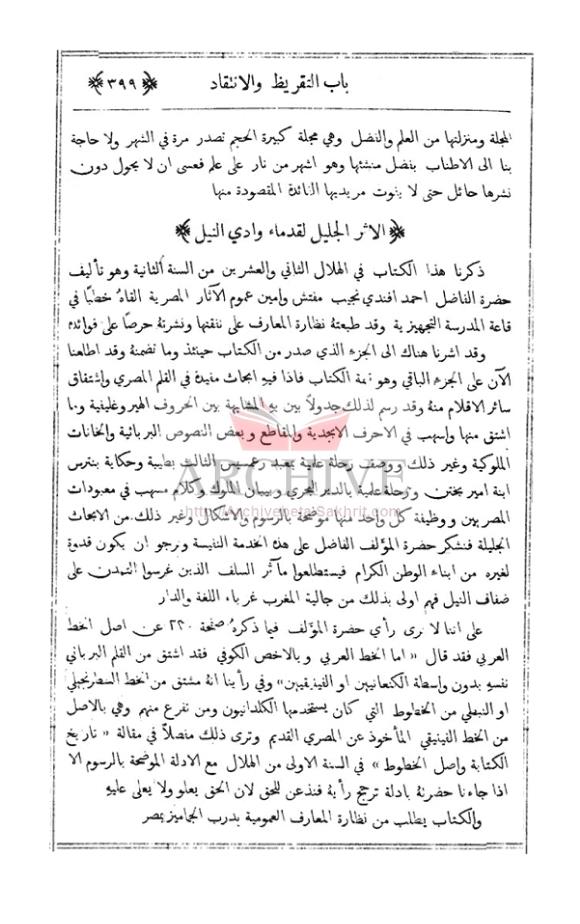 باب التقريظ والانتقاد
﴿ ٣٩٩ ﴾
المجلة ومنزلتها من العلم والفضل وهي مجلة كبيرة الحجم تصدر مرة في الشهر ولا حاجة
بنا الى الاطناب بفضل منشئها وهو اشهر من نار على علم فعسى ان لا يحول دون
نشرها حائل حتى لا يفوت مريديها الفائدة المقصودة منها
﴿ الاثر الجليل لقدماء وادي النيل ﴾
ذكرنا هذا الكتاب في الهلال الثاني والعشرين من السنة الثانية وهو تأليف
حضرة الفاضل احمد افندي نجيب مفتش وامين عموم الآثار المصرية القاهُ خطبًا في
قاعة المدرسة التجهيزية وقد طبعتهُ نظارة المعارف على نفقتها ونشرتهُ حرصًا على فوائدهِ
وقد اشرنا هناك الى الجزء الذي صدر من الكتاب حينئذ وما تضمنهُ وقد اطلعنا
الآن على الجزء الباقي وهو تتمة الكتاب فاذا فيهِ ابحاث مفيدة في القلم المصري واشتقاق
سائر الاقلام منهُ وقد رسم لذلك جدولاً بين بهِ المشابهة بين الحروف الهيروغليفية وما
اشتق منها واسهب في الاحرف الابجدية والمقاطع وبعض النصوص البربائية والخانات
الملوكية وغير ذلك ووصف رحلة علمية بمعبد رعمسيس الثالث بطيبة وحكاية بنترس
ابنة امير بختن ورحلة علمية بالدير البحري وبيبان الملوك وكلام مسهب في معبودات
المصريين ووظيفة كل واحد منها موضحة بالرسوم والاشكال وغير ذلك من الابحاث
الجليلة فنشكر حضرة المؤلف الفاضل على هذه الخدمة النفيسة ونرجو ان يكون قدوة
لغيره من ابناء الوطن الكرام فيستطلعوا مآثر السلف الذين غرسوا التمدن على
ضفاف النيل فهم اولى بذلك من جالية المغرب غرباء اللغة والدار
على اننا لا نرى رأي حضرة المؤلف فيما ذكرهُ صفحة ٢٢٠ عن اصل الخط
العربي فقد قال « اما الخط العربي وبالاخص الكوفي فقد اشتق من القلم البربائي
نفسهِ بدون واسطة الكنعانيين او الفينيقيين » وفي رأينا انهُ مشتق من الخط السطرنجيلي
او النبطي من الخطوط التي كان يستخدمها الكلدانيون ومن تفرع منهم وهي بالاصل
من الخط الفينيقي المأخوذ عن المصري القديم وترى ذلك مفصلاً في مقالة « تاريخ
الكتابة واصل الخطوط » في السنة الاولى من الهلال مع الادلة الموضحة بالرسوم الا
اذا جاءنا حضرتهُ بادلة ترجح رأيهُ فنذعن للحق لان الحق يعلو ولا يعلى عليهِ
والكتاب يطلب من نظارة المعارف العمومية بدرب الجماميز بمصر
ARCHIVE
http://Archivebeta.Sakhrit.com